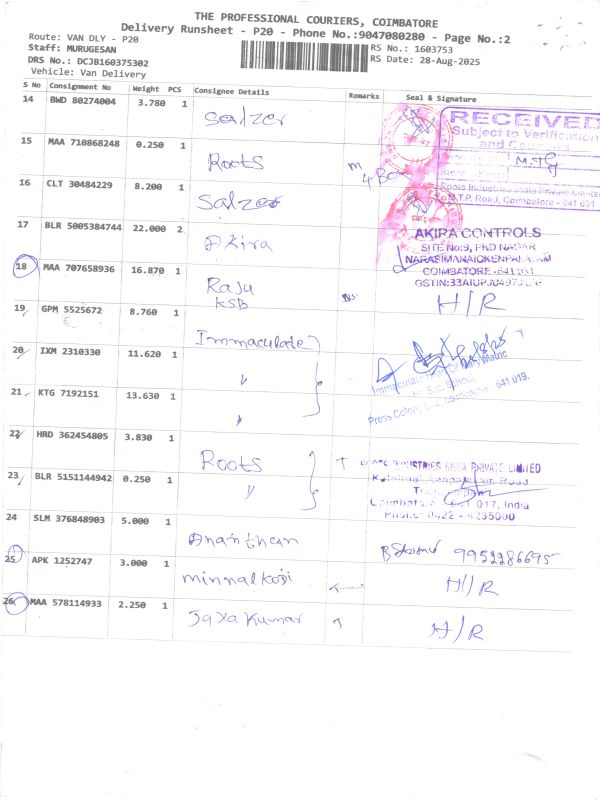 THE PROFESSIONAL COURIERS, COIMBATORE
Delivery Runsheet - P20 - Phone No.:9047080280 - Page No.:2
Route: VAN DLY - P20
RS No.: 1603753
Staff: MURUGESAN
RS Date: 28-Aug-2025
DRS No.: DCJB160375302
Vehicle: Van Delivery
S No Consignment No Weight PCS Consignee Details Remarks Seal & Signature
14 BWD 80274004 3.780 1 Salzer
RECEIVED
Subject to Verification
and Counting
15 MAA 710868248 0.250 1 Roots
Roots Industries India Private Limited
T.P. Road, Coimbatore - 641 031
16 CLT 30484229 8.200 1 Salzer
17 BLR 5005384744 22.000 2 Akira
AKIRA CONTROLS
SITE No:9, FKD NAGAR
NARASIMANAICKENPALAYAM
COIMBATORE - 641 031
18 MAA 707658936 16.870 1 Raju
KSB
H/R
19 GPM 5525672 8.760 1 Immaculate
20 IXM 2310330 11.620 1 〃
21 KTG 7192151 13.630 1 〃
Press Colony, Coimbatore - 641 019.
22 HRD 362454805 3.830 1 Roots T
ROOTS INDUSTRIES INDIA PRIVATE LIMITED
23 BLR 5151144942 0.250 1 〃
Coimbatore 641 017, India
24 SLM 376848903 5.000 1 Ananthan 9952286695
25 APK 1252747 3.000 1 minnalkodi H/R
26 MAA 578114933 2.250 1 Jayakumar H/R